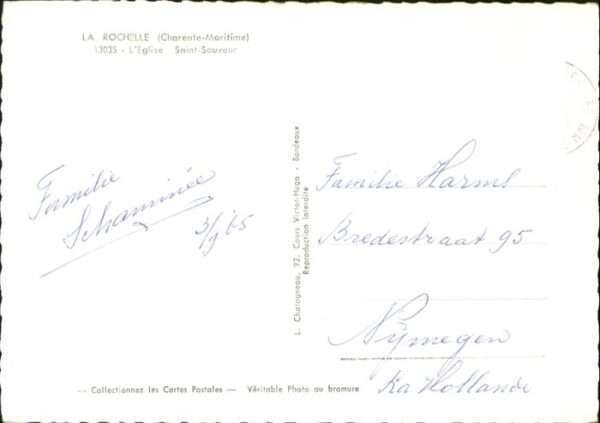 LA ROCHELLE (Charente-Maritime)
13035 - L'Église Saint-Sauveur
Familie
Schaminée
3/9 65
L. Chatagneau, 92, Cours Victor-Hugo - Bordeaux
Reproduction Interdite
Familie Harml
Bredestraat 95
Nijmegen
Ka Hollande
— Collectionnez les Cartes Postales — Véritable Photo au bromure